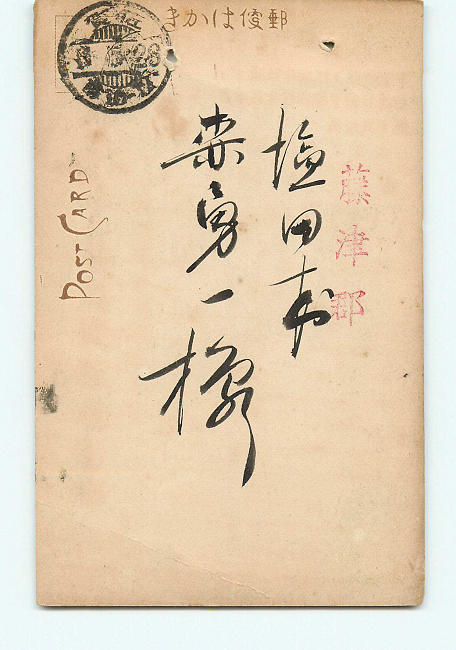 郵便はかき
藤津郡
塩田村
勇一様
POST CARD